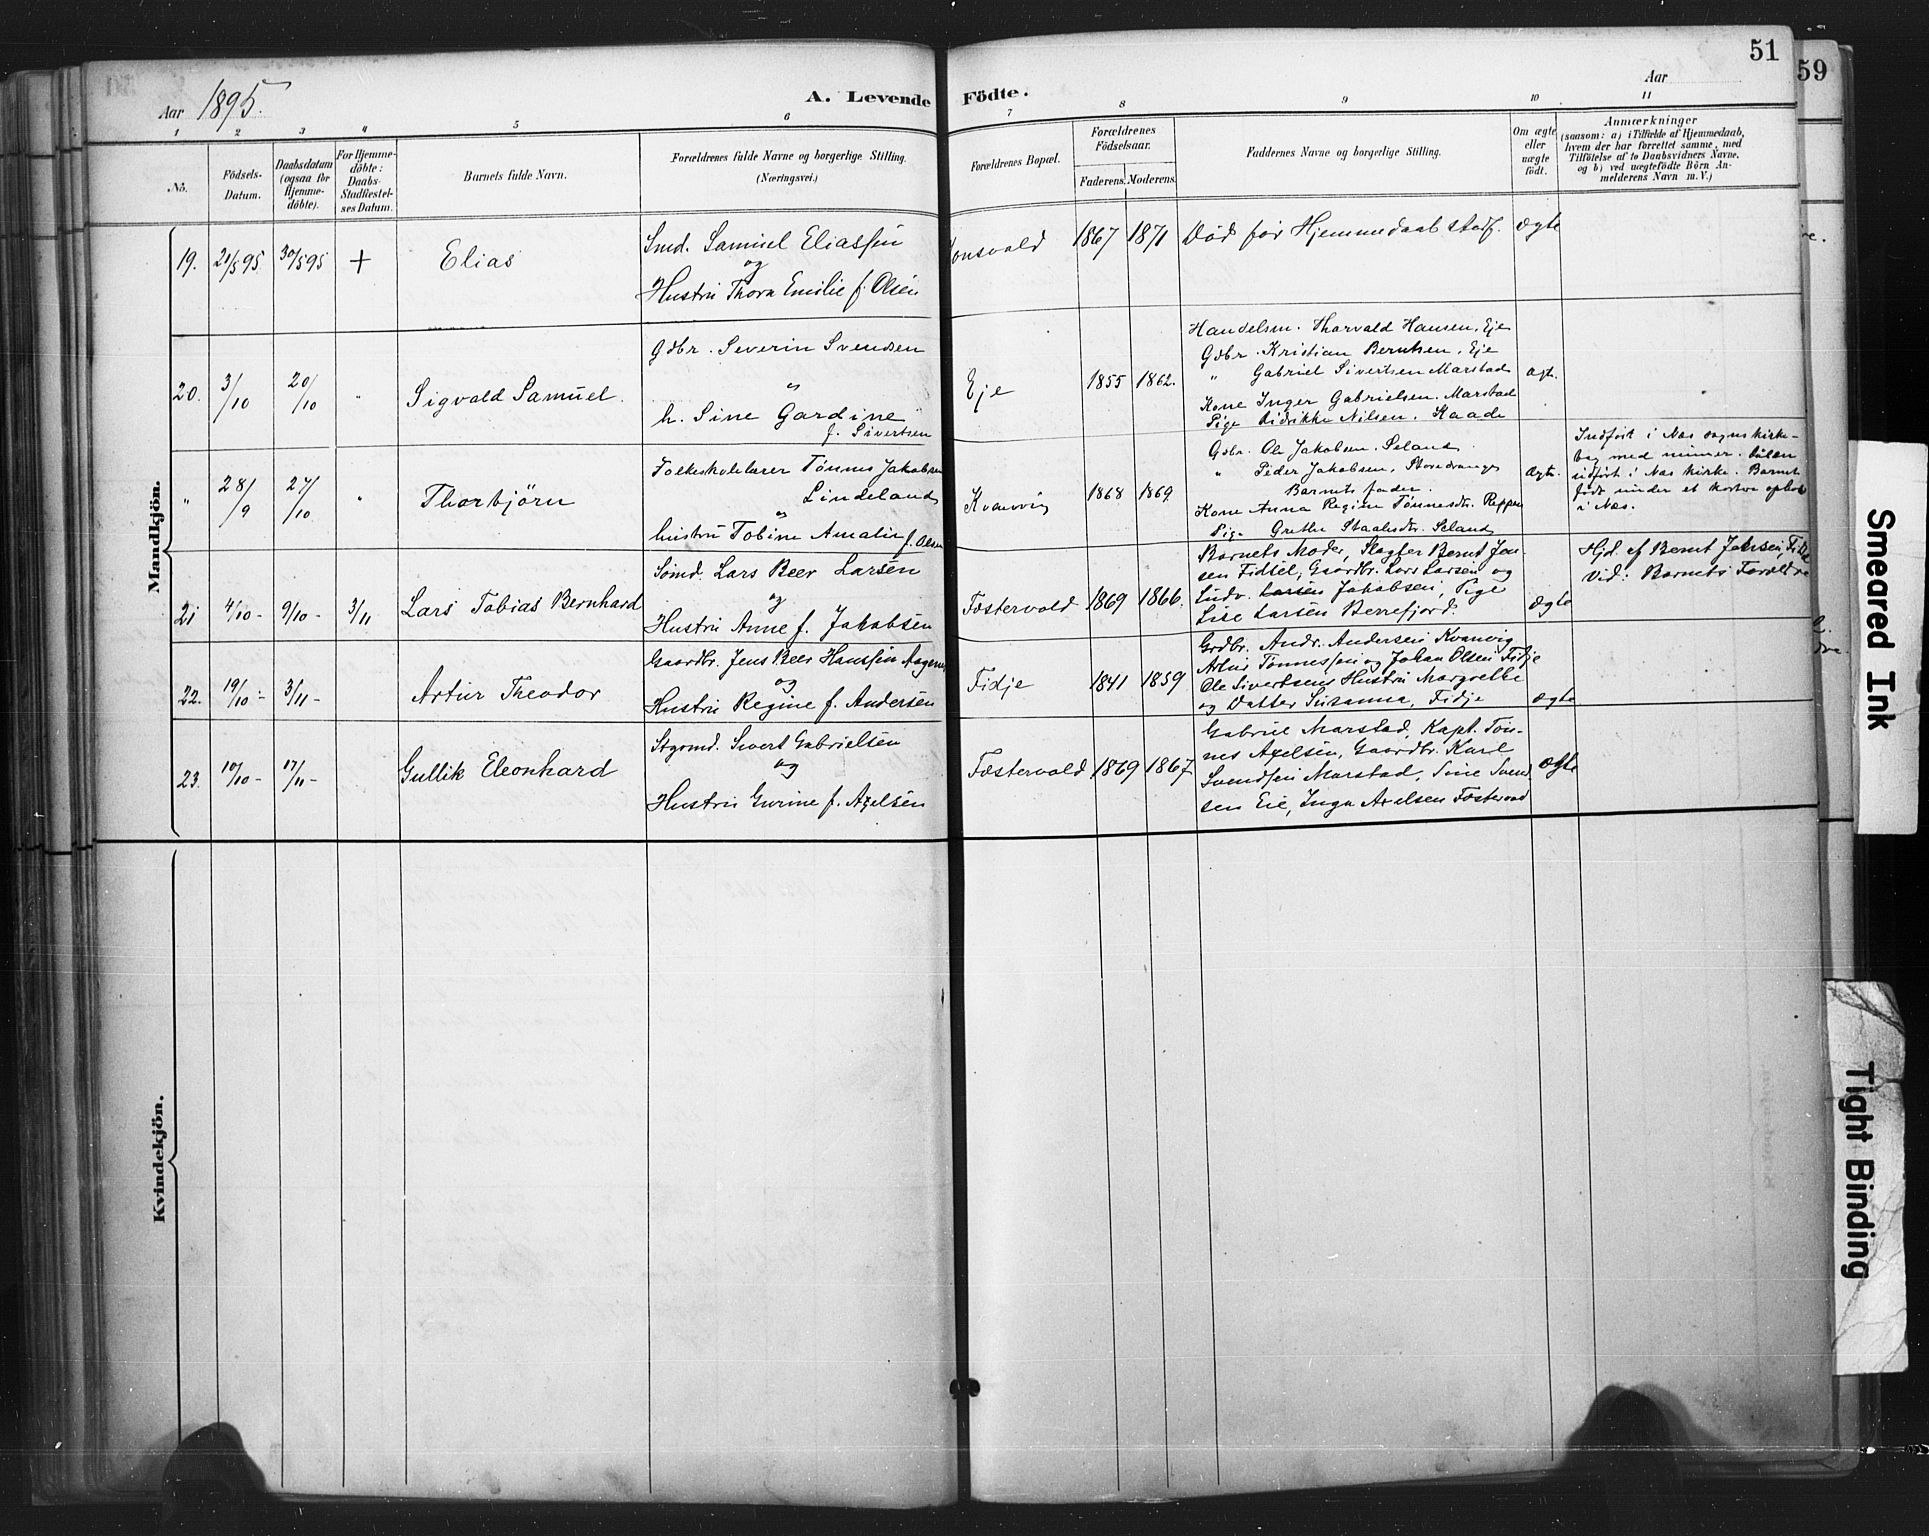 51
59
Aar 1895.
A. Levende Födte.
Aar
1 2 3 4 5 6 7 8 9 10 11
No.
Födsels-Datum.
Daabsdatum (ogsaa for Hjemme-döbte).
For Hjemme-döbte: Daabs-Stadfæstel-ses Datum.
Barnets fulde Navn.
Forældrenes fulde Navne og borgerlige Stilling.
(Næringsvei.)
Forældrenes Bopæl.
Forældrenes Födselsaar.
Faderens. Moderens.
Faddernes Navne og borgerlige Stilling.
Om ægte eller uægte födt.
Anmærkninger
(saasom: a) i Tilfælde af Hjemmedaab,
hvem der har forrettet samme, med
Tilföielse af to Daabsvidners Navne,
og b) ved uægtefödte Börn An-
melderens Navn m. V.)
Mandkjön.
19. 21/5 95. 30/5 95 + Elias
Smd. Samuel Eliassen
og
Hustru Thora Emilie f. Olsen
onsvold 1867 1871 Död før Hjemmedaab stadf. ægte
20. 3/10 20/10 " Sigvald Samuel.
Gdbr. Severin Svendsen
"
h. Sine Gardine
f. Sivertsen
Eje 1855 1862.
Handelsm. Thorvald Hansen, Eje
Gdbr. Kristian Berntsen, Eje
" Gabriel Sivertsen Marstad
Kone Inger Gabrielsen. Marstad
Pige Didrikke Nilsen. Kaade
ægt.
" 28/9 27/10 " Thorbjörn
Folkeskolelærer Tönnes Jakobsen
Lindeland
og
hustru Tobine Amalie f. Olsen
Kvanvig 1868 1869.
Gdbr. Ole Jakobsen. Seland.
" Peder Jakobsen,
Barnets fader.
Kone Anna Regine Tönnesdtr. Reppen
Pige Grethe Staalesdtr. Seland
ægt.
Indfört i Næs sognskirke-
bog med numer. Siden
udfört i Næs kirke. Barnet
födt under et kortere ophold
i Næs.
21 4/10 - 9/10 - 3/11 Lars Tobias Bernhard
Sømd. Lars Beer Larsen
og
Hustru Anne f. Jakobsen
Fæstervold 1869 1866.
Barnets Moder, Slagter Bernt Jen-
sen Fidsel, Gaardbr. Lars Larsen og
Ludv. Larsen Jakobsen, Pige
Lise Larsen Berrefjord.
ægte
Hjd. af Bernt Jensen,
Vid: Barnets Forældre
22. 19/10 - 3/11 - Artur Theodor
Gaardbr. Jens Beer Hanssen
og
Hustru Regine f. Andersen
Fidje 1841 1859
Grdbr. Andr. Andersen Kvanvig
Artur Tønnessen og Johan Olsen Fidje
Ole Sivertsens Hustru Margrethe
og Datter Susanna, Fidje
ægte
23. 10/10 - 17/11 - Gullik Eleonhard
Stgrmd. Sivert Gabrielsen
og
Hustru Gurine f. Axelsen
Fæstervold 1869 1867
Gabriel Marstad, Kapt. Tøn-
nes Axelsen, Gaardbr. Karl
Svendsen Marstad, Sine Svend
sen Eie, Inga Axelsen Fæstervold
ægte
Kvindekjön.
Smeared Ink
Tight Binding